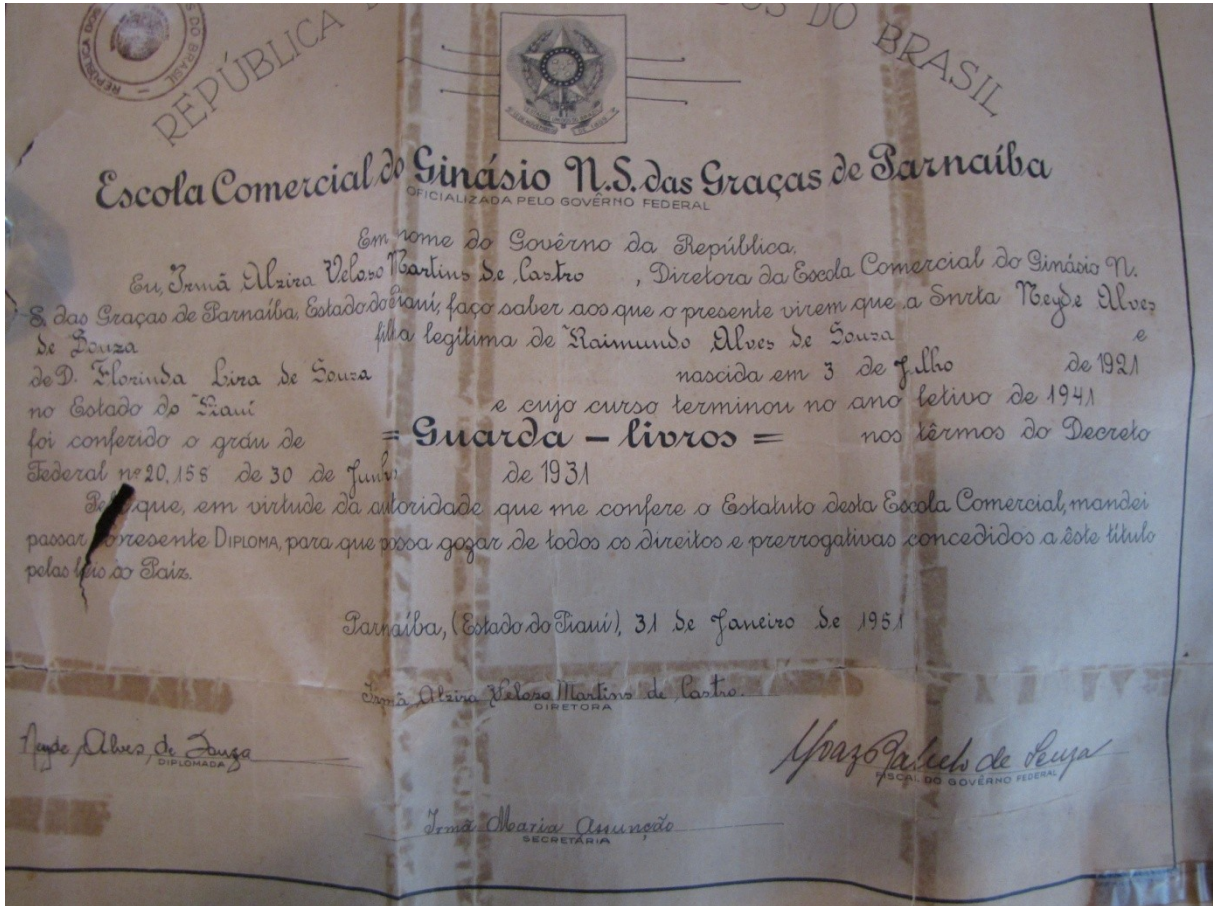 REPÚBLICA DOS
DO BRASIL
REPÚBLICA D OS DO BRASIL
Escola Comercial do Ginásio N.S. das Graças de Parnaíba
OFICIALIZADA PELO GOVÊRNO FEDERAL
Em nome do Govêrno da República.
Eu, Irmã Alzira Veloso Martins de Castro , Diretora da Escola Comercial do Ginásio N.
S. das Graças de Parnaíba, Estado do Piauí, faço saber aos que o presente virem que a Snrta Neyde Alves
de Souza filha legítima de Raimundo Alves de Sousa e
de D. Florinda Lira de Sousa nascida em 3 de Julho de 1921
no Estado do Piauí e cujo curso terminou no ano letivo de 1941
foi conferido o gráu de = Guarda – livros = nos têrmos do Decreto
Federal nº 20,158 de 30 de Junho de 1931
Pelo que, em virtude da autoridade que me confere o Estatuto desta Escola Comercial, mandei
passar o presente DIPLOMA, para que possa gozar de todos os direitos e prerrogativas concedidos a êste título
pelas leis do Paíz.
Parnaíba, (Estado do Piauí), 31 de Janeiro de 1951
Irmã Alzira Veloso Martins de Castro.
DIRETORA
Neyde Alves de Souza
DIPLOMADA
de Souza
FISCAL DO GOVÊRNO FEDERAL
Irmã Maria Assunção
SECRETÁRIA